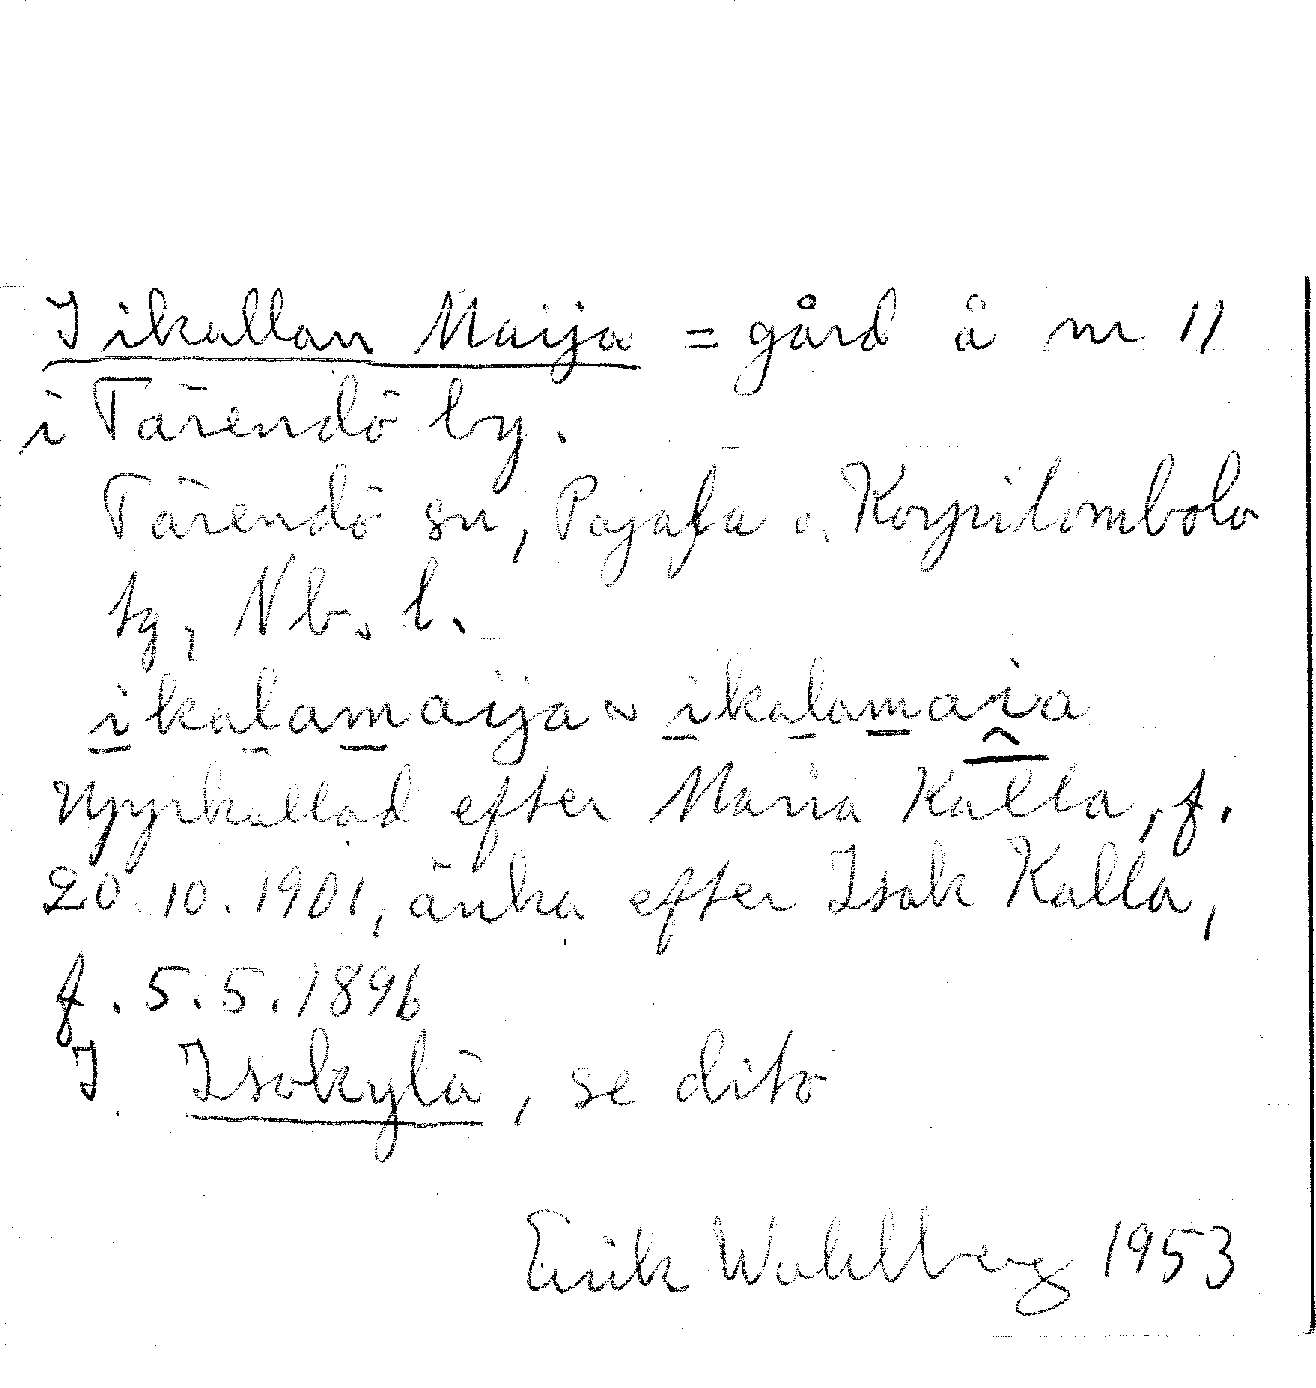 Iikallan Maija = gård å nr 11
i Tärendö by.
Tärendö sn, Pajala o. Korpilombolo
tg, Nb. l.
ikalamaija ~ ikalamaia
Uppkallad efter Maria Kalla, f.
20.10.1901, änka efter Isak Kalla,
f. 5.5.1896
I Isokylä, se dito
Erik Wahlberg 1953